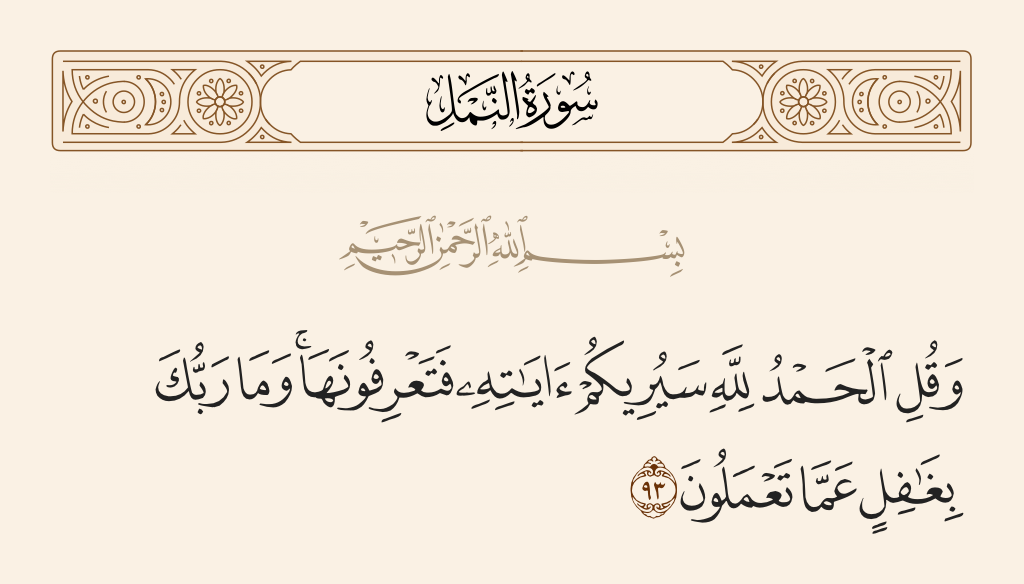 سُورَةُ النَّمْلِ
بِسْمِ ٱللَّهِ ٱلرَّحْمَٰنِ ٱلرَّحِيمِ
وَقُلِ ٱلْحَمْدُ لِلَّهِ سَيُرِيكُمْ ءَايَٰتِهِۦ فَتَعْرِفُونَهَا ۚ وَمَا رَبُّكَ
بِغَٰفِلٍ عَمَّا تَعْمَلُونَ ٩٣